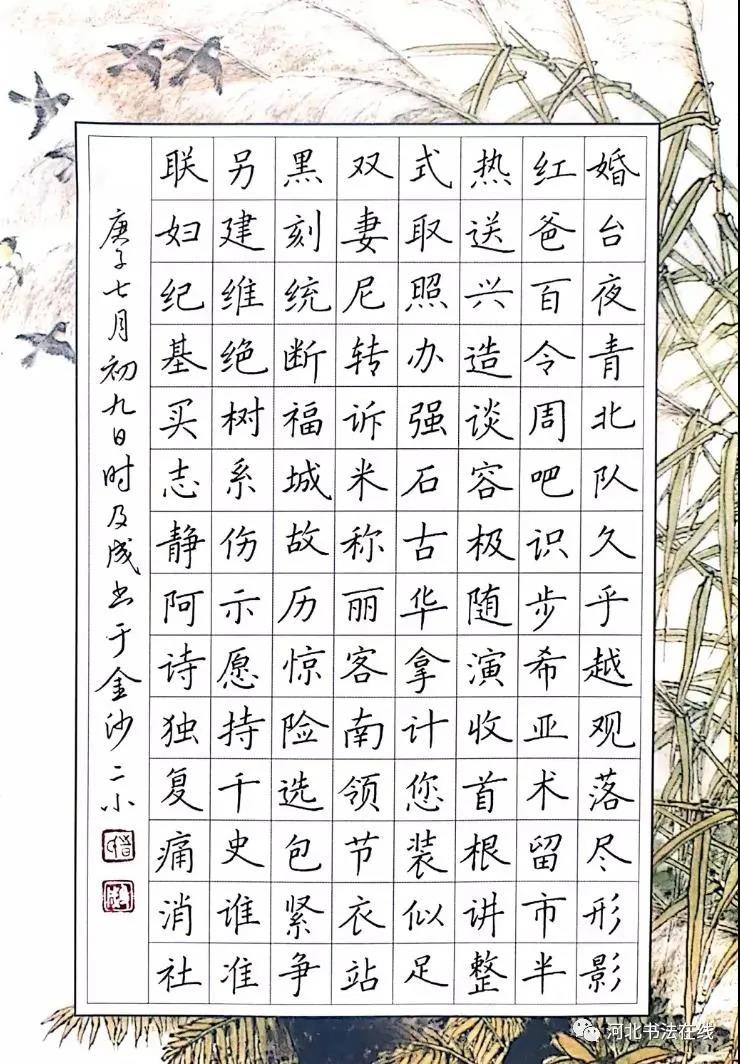 婚台夜青北队久乎越观落尽形影
红爸百令周吧识步希亚术留市半
热送兴造谈容极随演收首根讲整
式取照办强石古华拿计您装似足
双妻尼转诉米称丽客南领节衣站
黑刻统断福城故历惊险选包紧争
另建维绝树系伤示愿持千史谁准
联妇纪基买志静阿诗独复痛消社
庚子七月初九日时及成书于金沙二小
河北书法在线